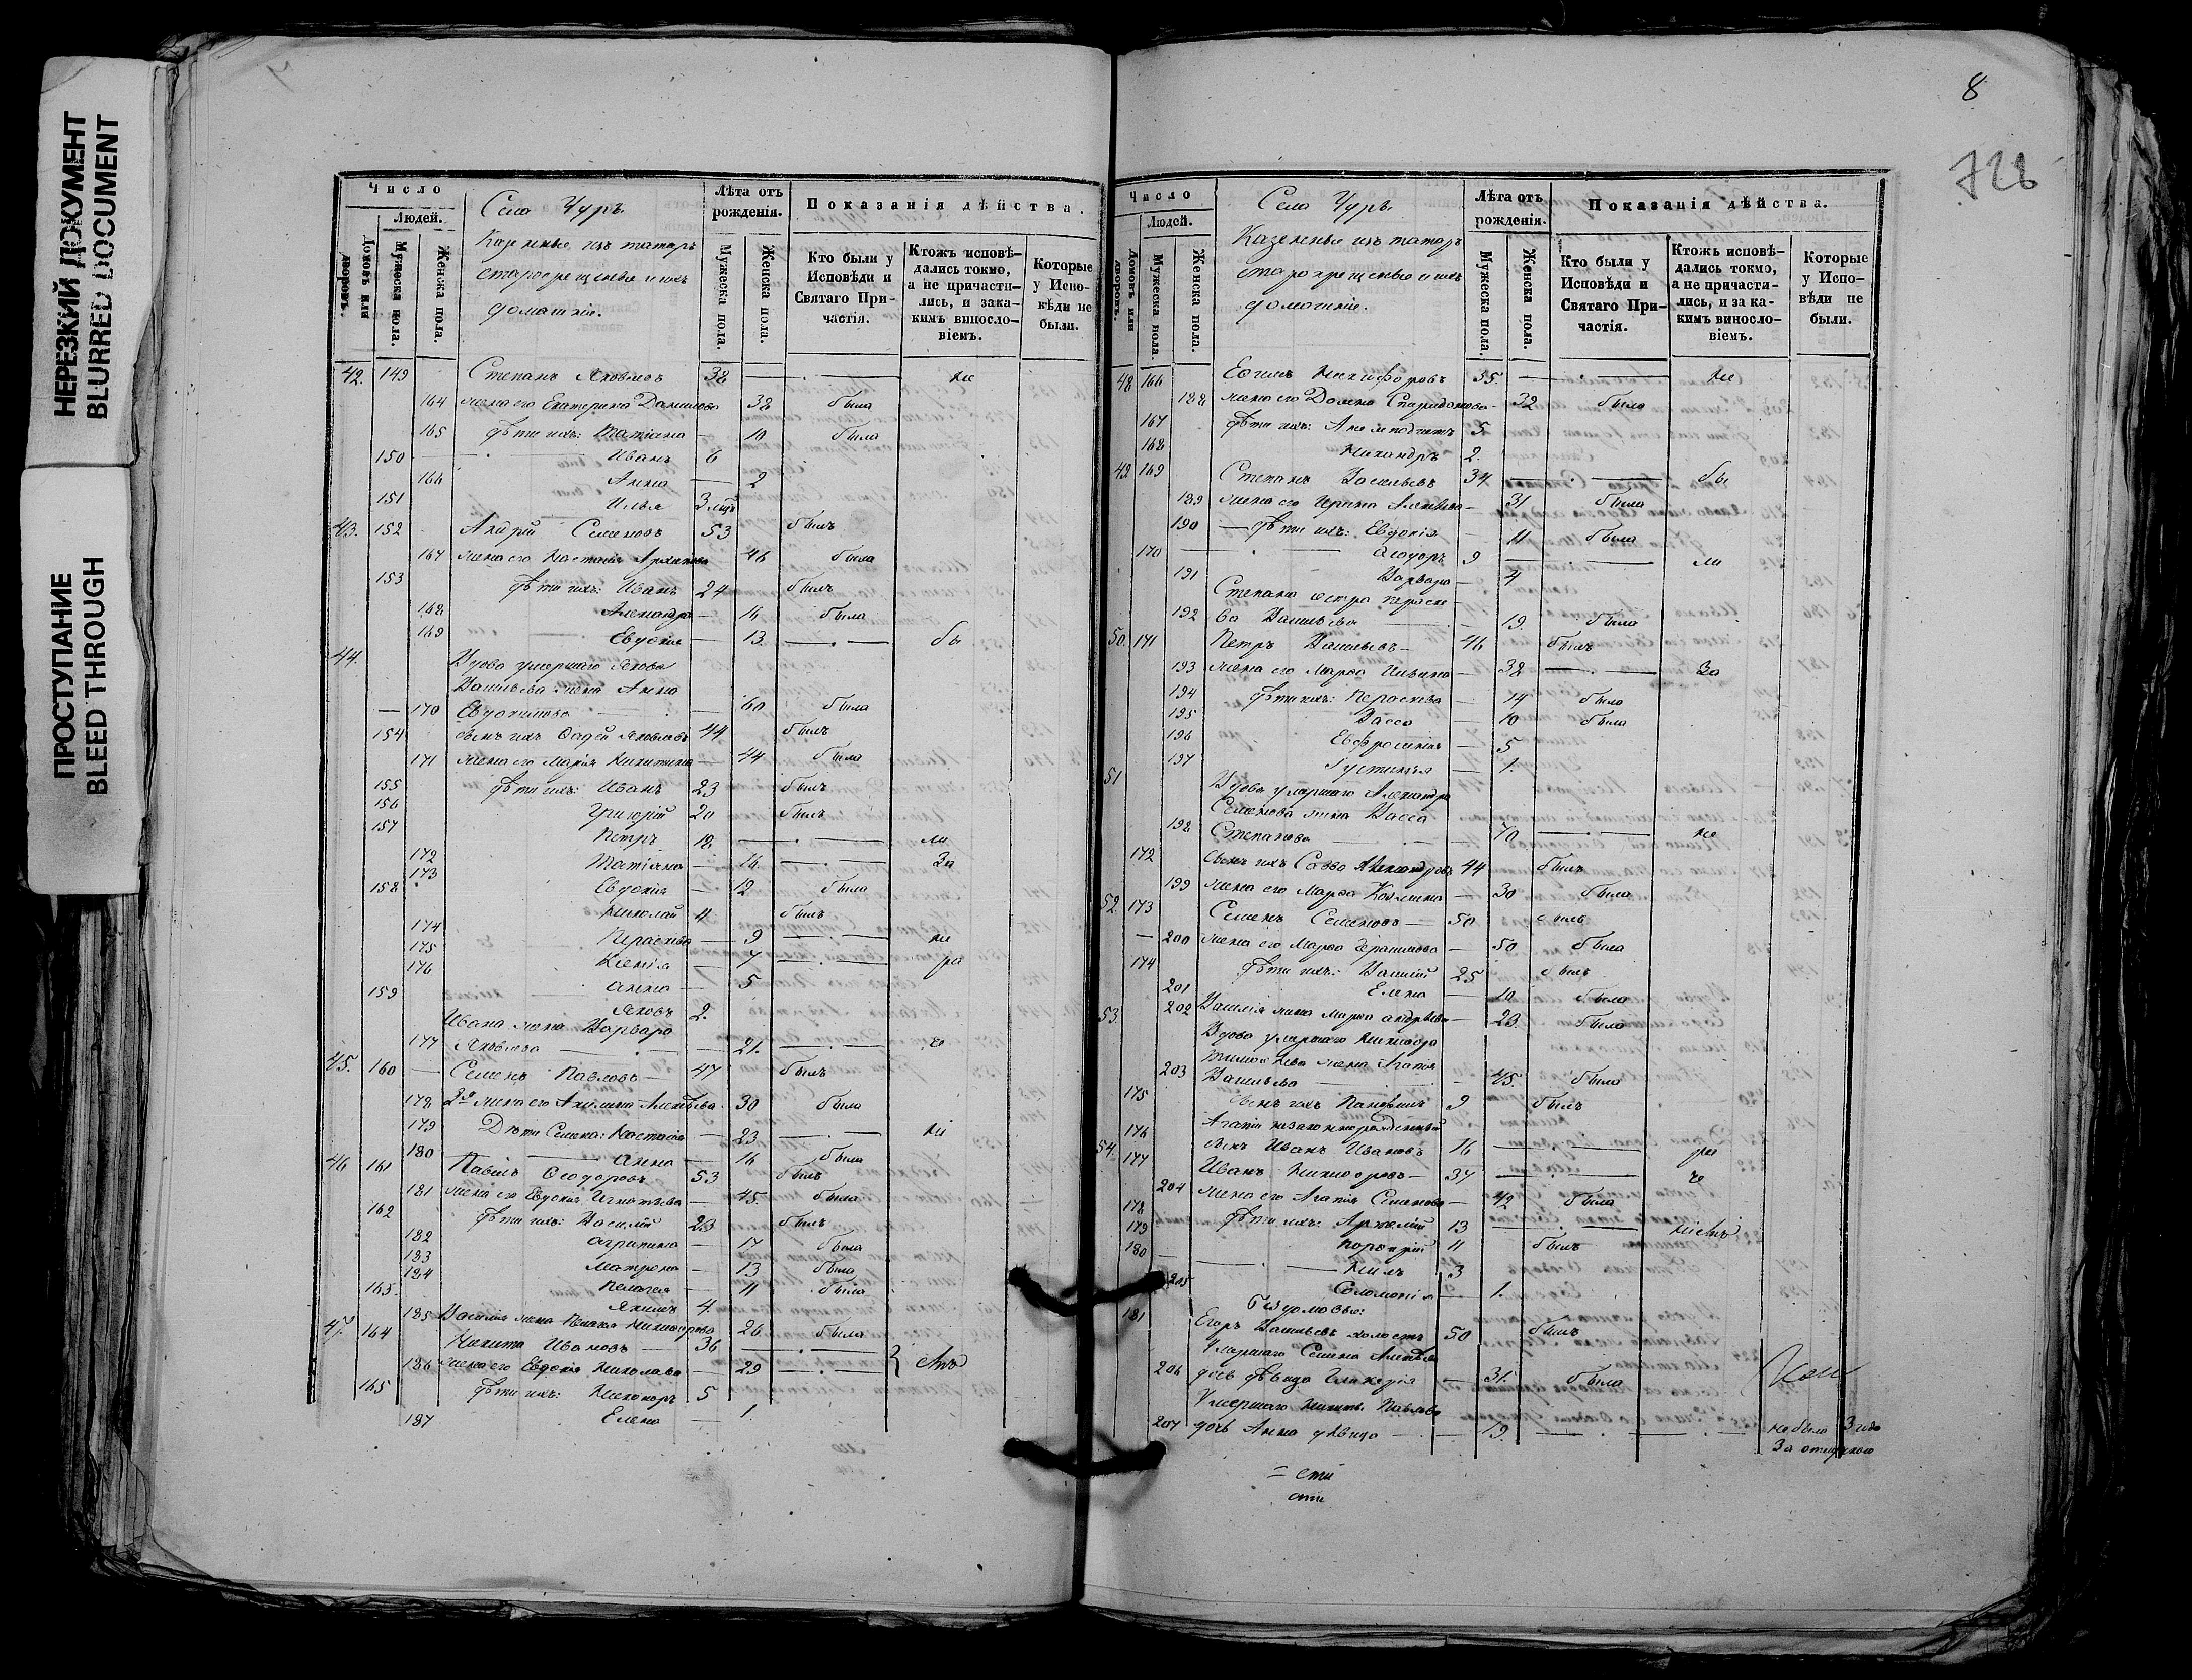 НЕРЕЗКИЙ ДОКУМЕНТ
BLURRED DOCUMENT
ПРОСТУПАНИЕ
BLEED THROUGH
Число
Людей.
Домовъ или дворовъ.
Мужеска пола.
Женска пола.
Село Чуръ.
Казенные изъ татаръ
старокрещеные и ихъ
домашніе.
Лѣта отъ рожденія.
Мужеска пола.
Женска пола.
Показанія дѣйства.
Кто были у Исповѣди и Святаго Причастія.
Ктожъ исповѣдались токмо, а не причастились, и закакимъ винословіемъ.
Которые у Исповѣди не были.
42. 149 Степанъ Яковлевъ 38 не
164 жена его Екатерина Данилова 38 была
165 дѣти ихъ: Татіана 10 была
150 Иванъ 6
166 Анна 2
151 Илья 3
43. 152 Андрій Семеновъ 53 былъ
167 жена его Настасія Архипова 46 была
153 дѣти ихъ: Иванъ 24 былъ
168 Александра 16 была
169 Евдокія 13. бы
44. Вдова умершаго Якова
Васильева жена Анна
170 Евдокимова 60 была
154 сынъ ихъ Фадей Яковлевъ 44 былъ
171 жена его Марія Никитина 44 была
155 дѣти ихъ: Иванъ 23 былъ
156 Григорій 20 былъ
157 Петръ 18 ли
172 Татіана 16. За
173 Евдокія 12 была
158 Николай 11 былъ
174 Параскева 9 не
175 Ксенія 7 ра
176 Анна 5
159 Яковъ 2.
Ивана жена Варвара
177 Яковлева 21. че
45. 160 Семенъ Павловъ 47 былъ
178 2я жена его Акилина Алексѣева 30 была
179 Дѣти Семена: Настасія 23 ні
180 Анна 16 была
46 161 Павелъ Ѳеодоровъ 53 былъ
181 жена его Евдокія Игнатьева 45. была
162 дѣти ихъ: Василій 23 былъ
182 Агрипина 17 была
183 Матрона 13 была
184 Пелагея 11 была
163. Якимъ 4.
185 Василія жена Никифорова 26 была
47. 164 Никита Ивановъ 36
186 жена его Евдокія Николаева 29 емъ
165 дѣти ихъ: Никаноръ 5
187 Елена 1.
8
728
Число
Людей.
Домовъ или дворовъ.
Мужеска пола.
Женска пола.
Село Чуръ.
Казенные изъ татаръ
старокрещеные и ихъ
домашніе.
Лѣта отъ рожденія.
Мужеска пола.
Женска пола.
Показанія дѣйства.
Кто были у Исповѣди и Святаго Причастія.
Ктожъ исповѣдались токмо, а не причастились, и за какимъ винословіемъ.
Которые у Исповѣди не были.
48 166 Ефимъ Никифоровъ 35. не
188 жена его Домна Спиридонова 32 была
167 дѣти ихъ: Анемподистъ 5.
168 Никандръ 2.
49 169 Степанъ Васильевъ 34. бы
189 жена его Ирина Алексѣева 31 была
190 дѣти ихъ: Евдокія 11 была
170 Ѳеодоръ 9 ли
191 Варвара 4
Степана сестра Параске
192 ва Васильева 19. была
50. 171 Петръ Васильевъ 46 былъ
193 жена его Марѳа 38 За
194 дѣти ихъ: Параскева 14 была
195 Васса 10 была
196 Евфросинія 5
197 Іустинья 1.
51 Вдова умершаго Александра
Семенова жена Васса
198 Степанова 70 не
172 сынъ ихъ Савва Александровъ 44 былъ
199 жена его Марѳа Козьмина 30 была
52. 173 Семенъ Семеновъ 50 былъ
200 жена его Марѳа Герасимова 50 была
174 дѣти ихъ: Василій 25 былъ
201 Елена 10 была
202 Василія жена Марѳа Андрѣева 23 была
53. Вдова умершаго Никифора
Тимоѳѣева жена Агапія
203 Васильева 45. была
175 сынъ ихъ 9 былъ
Агапіи незаконнорожденный
176 сынъ Иванъ Ивановъ 16 ра
54. 177 Иванъ Никифоровъ 37 че
204 жена его Агапія Семенова 42 была
178 дѣти ихъ: 13 ніемъ
179 Порфирій 11 былъ
180 Нилъ 3
205 Соломонія 1.
Бездомовые:
181 Егоръ Васильевъ холостъ 50 былъ
Умершаго Семена Алексѣева
206 дочь дѣвица Гликерія 31. была
Умершаго Никиты Павлова
207 дочь Анна дѣвица 19. не была 3 года
За отлучкою